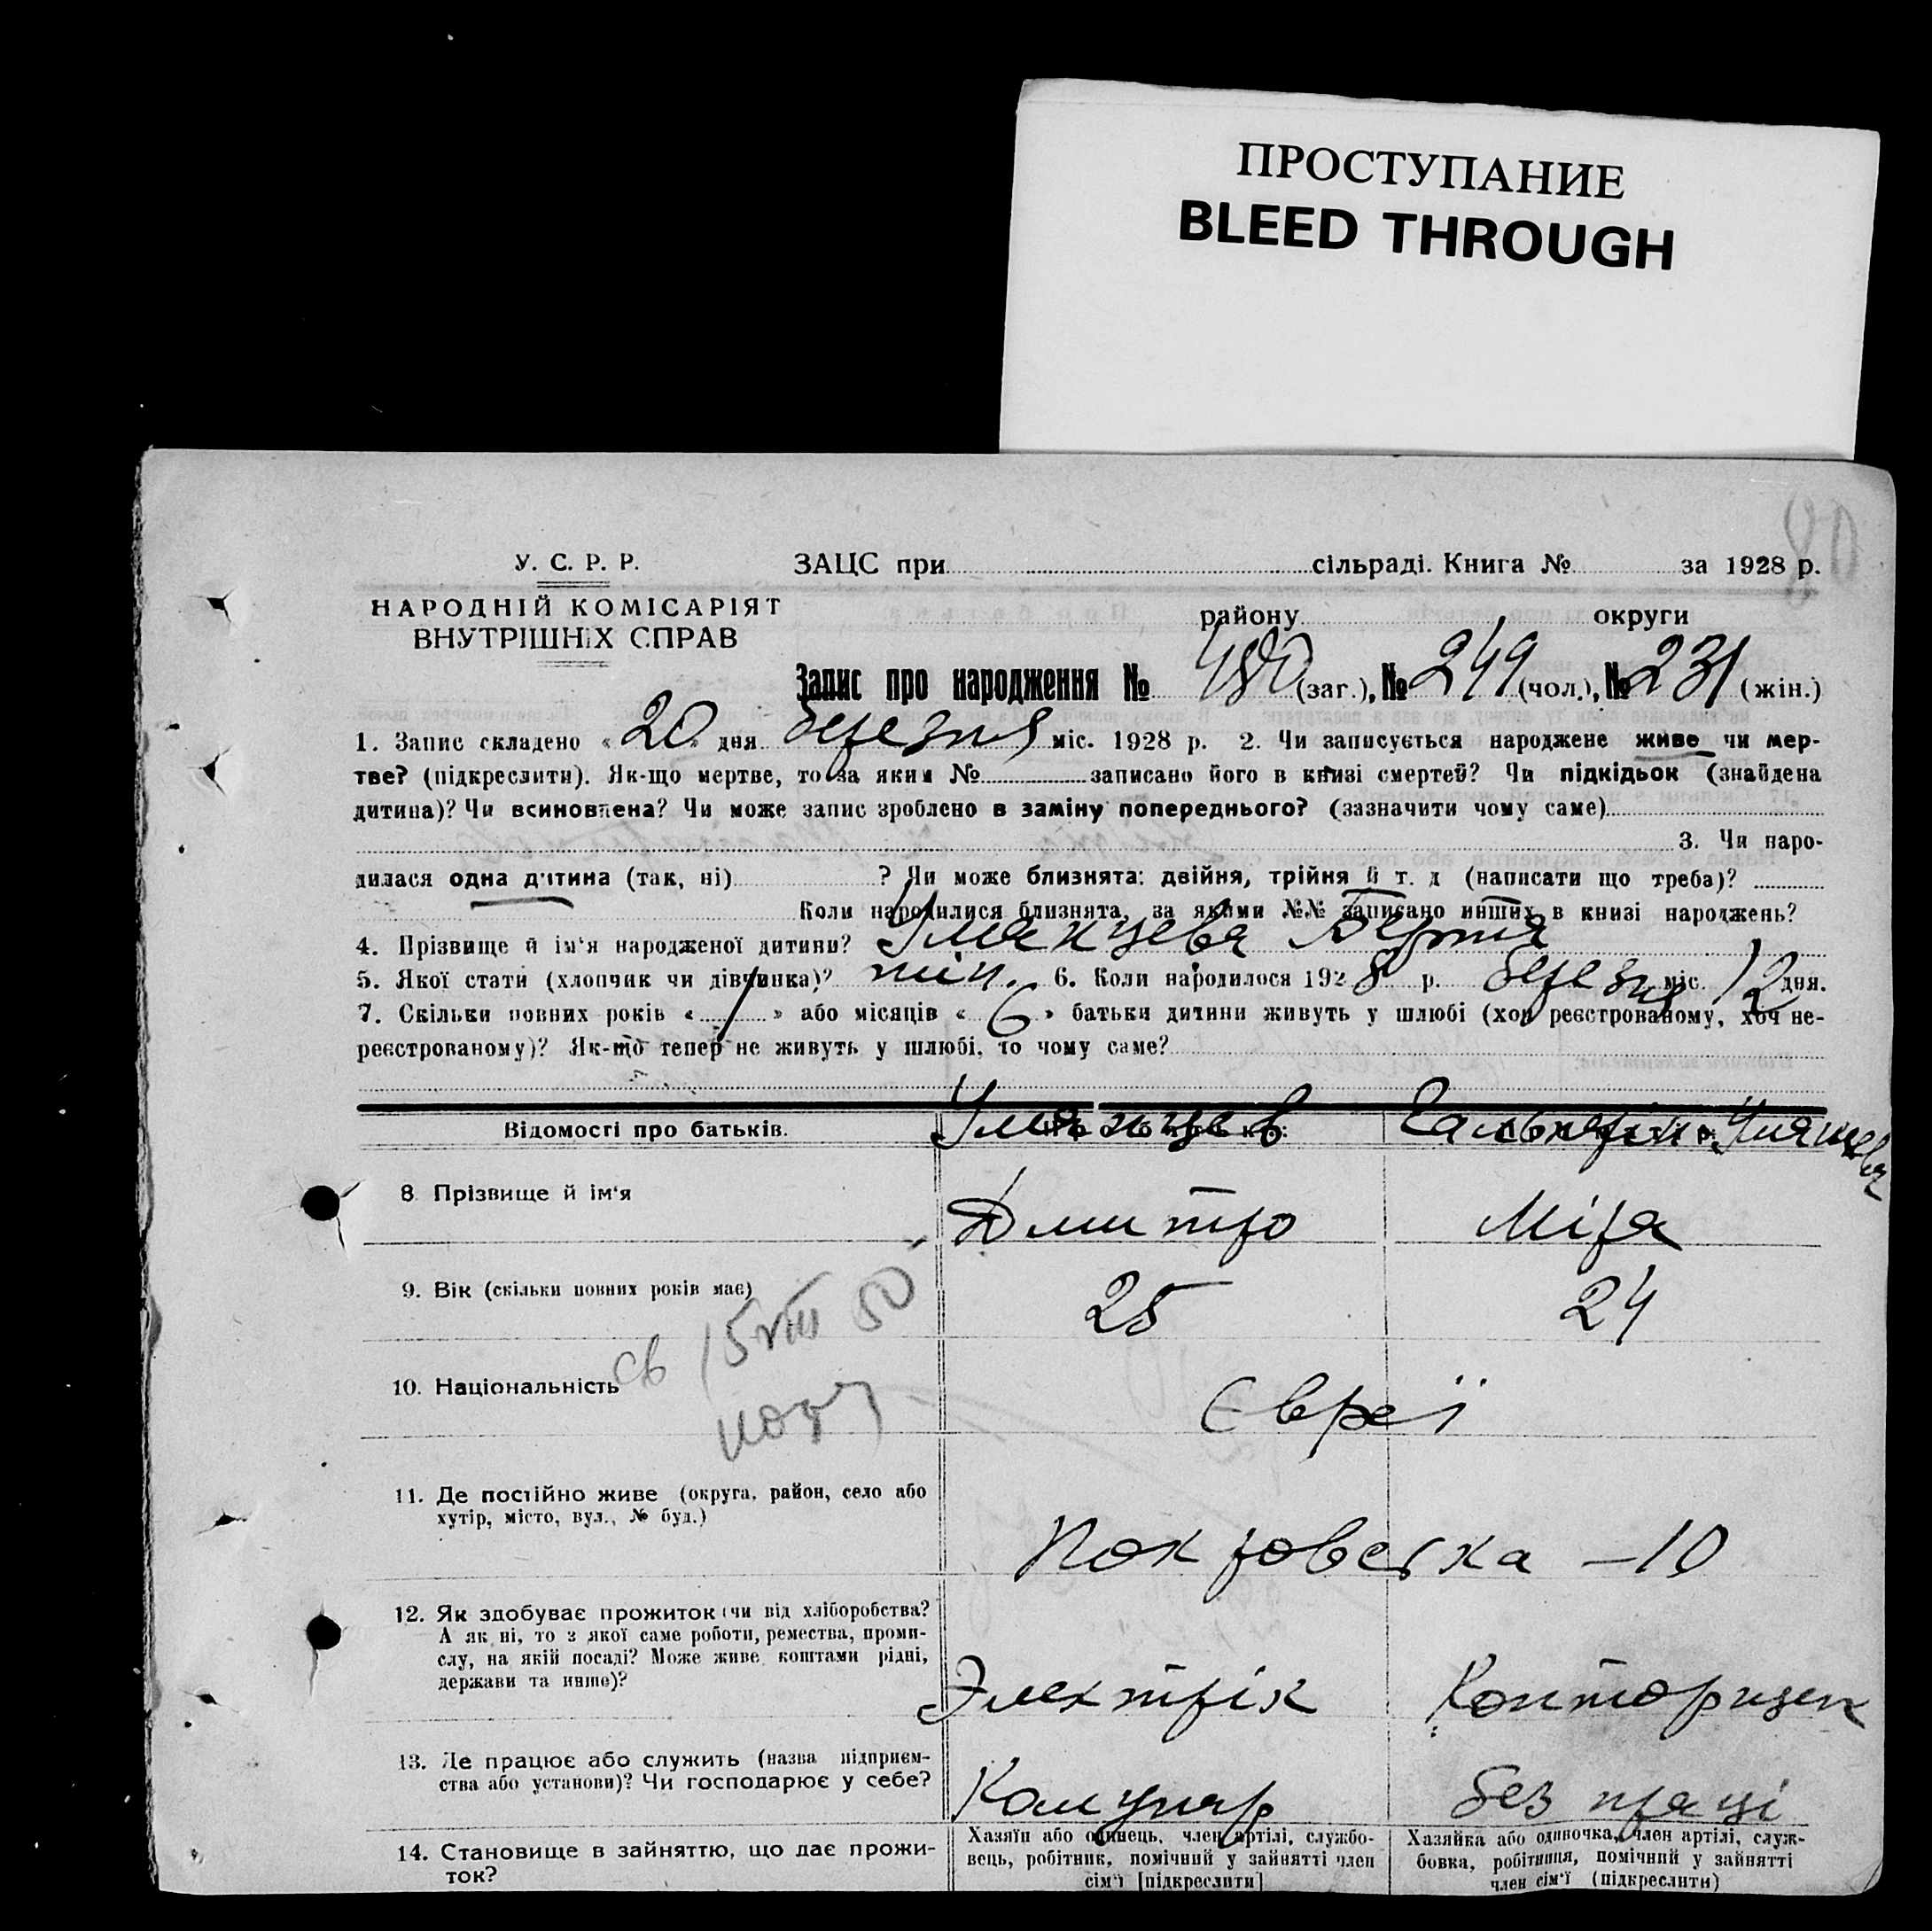 ПРОСТУПАНИЕ
BLEED THROUGH
У. С. Р. Р.
НАРОДНІЙ КОМІСАРІЯТ
ВНУТРІШНІХ СПРАВ
ЗАЦС при сільраді. Книга № за 1928 р.
району округи
Запис про народження № 480 (заг.), № 249 (чол.), № 231 (жін.)
1. Запис складено « 20 » дня березня міс. 1928 р. 2. Чи записується народжене живе чи мер-
тве? (підкреслити). Як-що мертве, то за яким № записано його в книзі смертей? Чи підкідьок (знайдена
дитина)? Чи всиновлена? Чи може запис зроблено в заміну попереднього? (зазначити чому саме)
3. Чи наро-
дилася одна дитина (так, ні) ? Чи може близнята: двійня, трійня й т. д (написати що треба)?
Коли народилися близнята, за якими №№ записано инших в книзі народжень?
4. Прізвище й ім'я народженої дитини? Умянцева Берта
5. Якої стати (хлопчик чи дівчинка)? жін. 6. Коли народилося 1928 р. березня міс. 12 дня.
7. Скільки повних років « 1 » або місяців « 6 » батьки дитини живуть у шлюбі (хоч реєстрованому, хоч не-
реєстрованому)? Як-що тепер не живуть у шлюбі, то чому саме?
Відомості про батьків.
Умянцев
8. Прізвище й ім'я Дмитро Міра
9. Вік (скільки повних років має) 25 24
св 15 VIII 50
10. Національність Євреї
11. Де постійно живе (округа, район, село або
хутір, місто, вул., № буд.)
Покровська – 10
12. Як здобуває прожиток (чи від хліборобства?
А як ні, то з якої саме роботи, ремества, проми-
слу, на якій посаді? Може живе коштами рідні,
держави та инше)?
Электрік Конторщен
13. Де працює або служить (назва підприєм-
ства або установи)? Чи господарює у себе?
Комунар без праці
14. Становище в зайняттю, що дає прожи-
ток?
Хазяїн або одинець, член артілі, службо-
вець, робітник, помічний у зайнятті член
сім'ї [підкреслити]
Хазяйка або одиночка, член артілі, служ-
бовка, робітниця, помічний у зайнятті
член сім'ї (підкреслити)